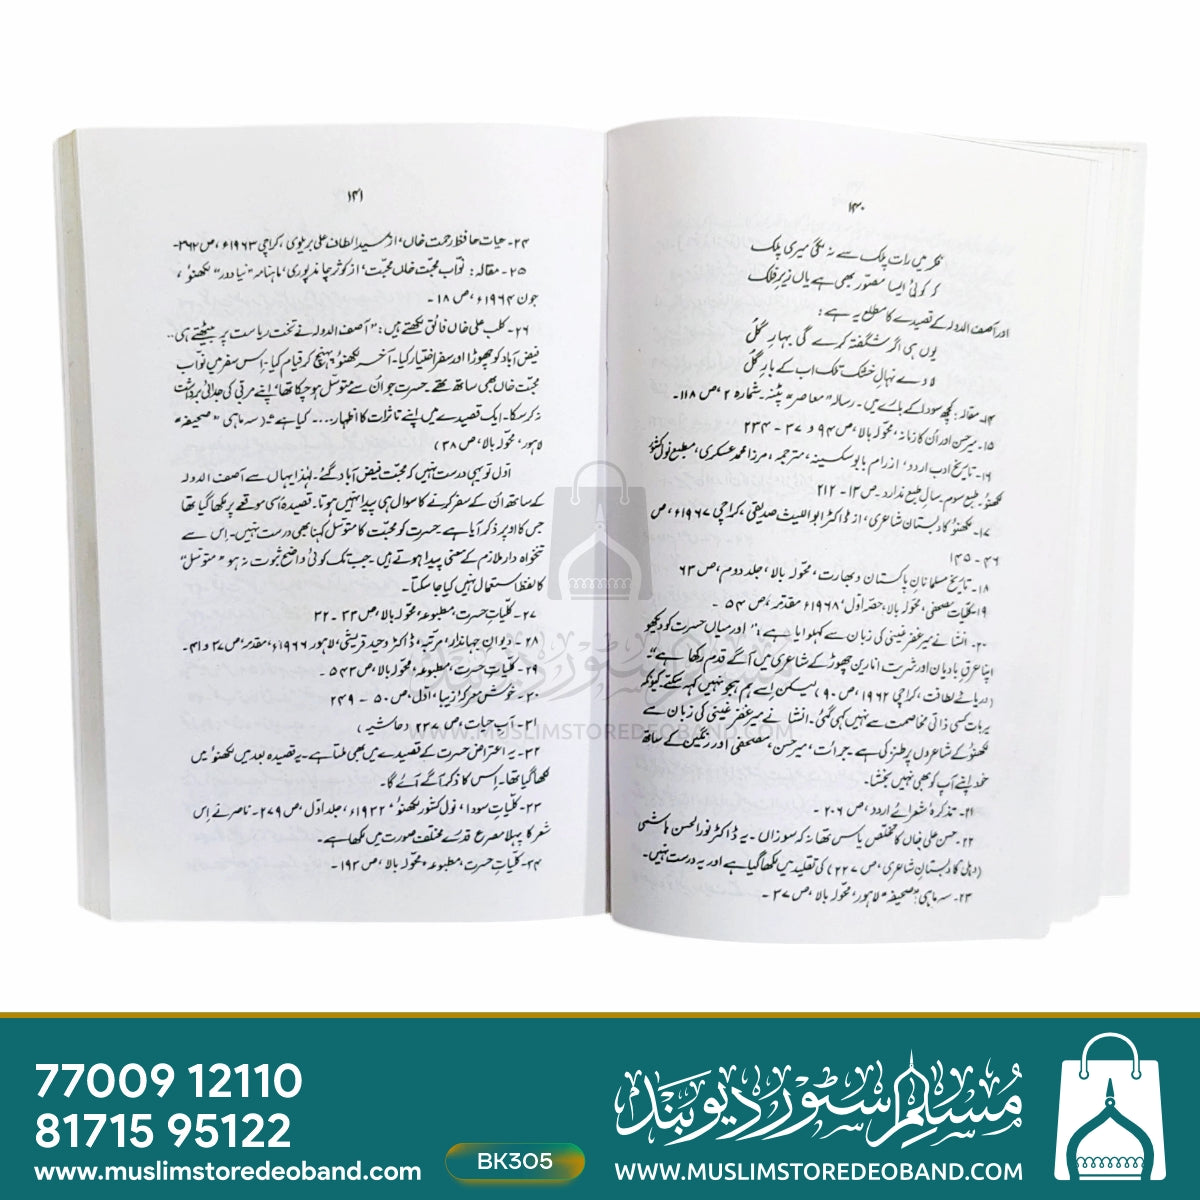 ۱۴۰
فکر میں رات پلک سے نہ لگی میری پلک
کہ کوئی ایسا مصور بھی ہے یاں زیرِ فلک
اور آصف الدولہ کے قصیدے کا مطلع یہ ہے:
یوں ہی اگر شگفتہ کرے گی بہارِ گُل
لاوے نہالِ خشک تلک اب کے بار گُل
۱۴۔ مقالہ: کچھ سودا کے بارے میں۔ رسالہ "معاصر" پٹنہ۔ شمارہ ۲، ص ۱۱۸۔
۱۵۔ میر حسن اور اُن کا زمانہ، محولہ بالا، ص ۹۴ و ۳۷ - ۲۳۴
۱۶۔ تاریخِ ادب اردو، از رام بابو سکسینہ، مترجمہ، مرزا محمد عسکری، مطبع نول کشور
لکھنؤ، طبع سوم، سالِ طبع ندارد۔ ص ۱۳ - ۲۱۲
۱۷۔ لکھنؤ کا دبستانِ شاعری، از ڈاکٹر ابواللیث صدیقی، کراچی ۱۹۶۷ء، ص
۴۶ - ۱۴۵
۱۸۔ تاریخِ مسلمانانِ پاکستان و بھارت، محولہ بالا، جلد دوم، ص ۶۳
۱۹۔ کلیاتِ مصحفی، محولہ بالا، حصہ اول، ۱۹۶۸ء مقدمہ، ص ۵۴ -
۲۰۔ انشا نے میر غفر غینی کی زبان سے کہلوایا ہے، "اور میاں حسرت کو دیکھو
اپنا عرقِ بادیان اور شربت انارین چھوڑ کے شاعری میں آگے قدم رکھا ہے"۔
(دریائے لطافت، کراچی ۱۹۶۲ء، ص ۹۰) لیکن اسے ہم ہجو نہیں کہہ سکتے۔ کیونکہ
یہ بات کسی ذاتی مخاصمت سے نہیں کہی گئی۔ انشا نے میر غفر غینی کی زبان سے
لکھنؤ کے شاعروں پر طنز کی ہے۔ جرأت، میر حسن، مصحفی اور رنگین کے ساتھ
خود اپنے آپ کو بھی نہیں بخشا۔
۲۱۔ تذکرۂ شعرائے اردو، ص ۲۰۶ -
۲۲۔ حسن علی خاں کا تخلص یاس تھا نہ کہ سوزاں۔ یہ ڈاکٹر نور الحسن ہاشمی
(دلی کا دبستانِ شاعری، ص ۲۲۷) کی تقلید میں لکھا گیا ہے اور یہ درست نہیں۔
۲۳۔ سہ ماہی "صحیفہ" لاہور، محولہ بالا، ص ۳۷ -
۱۴۱
۲۴۔ حیاتِ حافظ رحمت خاں، از سید الطاف علی بریلوی، کراچی ۱۹۶۳ء، ص ۳۶۲۔
۲۵۔ مقالہ: نواب محبت خاں محبت، از کوثر چاند پوری، ماہنامہ "نیا دور" لکھنؤ،
جون ۱۹۶۴ء، ص ۱۸۔
۲۶۔ کلب علی خاں فائق لکھتے ہیں: "آصف الدولہ نے تخت ریاست پر بیٹھتے ہی..
فیض آباد کو چھوڑا اور سفر اختیار کیا۔ آخر لکھنؤ پہنچ کر قیام کیا۔ اِس سفر میں نواب
محبت خاں بھی ساتھ تھے۔ حسرت جو اُن سے متوسل ہو چکا تھا، اپنے مربی کی جدائی برداشت
نہ کر سکا۔ ایک قصیدے میں اپنے تاثرات کا اظہار... کیا ہے" (سہ ماہی "صحیفہ"
لاہور، محولہ بالا، ص ۳۸)
اول تو یہی درست نہیں کہ محبت فیض آباد گئے۔ لہٰذا یہاں سے آصف الدولہ
کے ساتھ اُن کے سفر کرنے کا سوال ہی پیدا نہیں ہوتا۔ قصیدہ اُسی موقعے پر لکھا گیا تھا
جس کا اوپر ذکر آیا ہے۔ حسرت کو محبت کا متوسل کہنا بھی درست نہیں۔ اِس سے
تنخواہ دار ملازم کے معنی پیدا ہوتے ہیں۔ جب تک کوئی واضح ثبوت نہ ہو "متوسل"
کا لفظ استعمال نہیں کیا جا سکتا۔
۲۷۔ کلیاتِ حسرت، مطبوعہ، محولہ بالا، ص ۳۳ - ۳۲
۲۸۔ دیوانِ جہاندار، مرتبہ، ڈاکٹر وحید قریشی، لاہور ۱۹۶۶ء، مقدمہ، ص ۳۷ و ۴۱۔
۲۹۔ کلیاتِ حسرت، مطبوعہ، محولہ بالا، ص ۵۴۳ -
۳۰۔ خوش معرکۂ زیبا، اول، ص ۵۰ - ۲۴۹
۳۱۔ آبِ حیات، ص ۲۳۷ (حاشیہ)
۳۲۔ یہ اعتراض حسرت کے قصیدے میں بھی ملتا ہے۔ یہ قصیدہ بعد میں لکھنؤ میں
لکھا گیا تھا۔ اِس کا ذکر آگے آئے گا۔
۳۳۔ کلیاتِ سودا، نول کشور لکھنؤ، ۱۹۳۲ء، جلد اول، ص ۲۷۹۔ ناصر نے اِس
شعر کا پہلا مصرع قدرے مختلف صورت میں لکھا ہے۔
۳۴۔ کلیاتِ حسرت، مطبوعہ، محولہ بالا، ص ۱۹۳ -
مسلم سٹور دیوبند
WWW.MUSLIMSTOREDEOBAND.COM
77009 12110
81715 95122
www.muslimstoredeoband.com
BK305
مسلم سٹور دیوبند
WWW.MUSLIMSTOREDEOBAND.COM